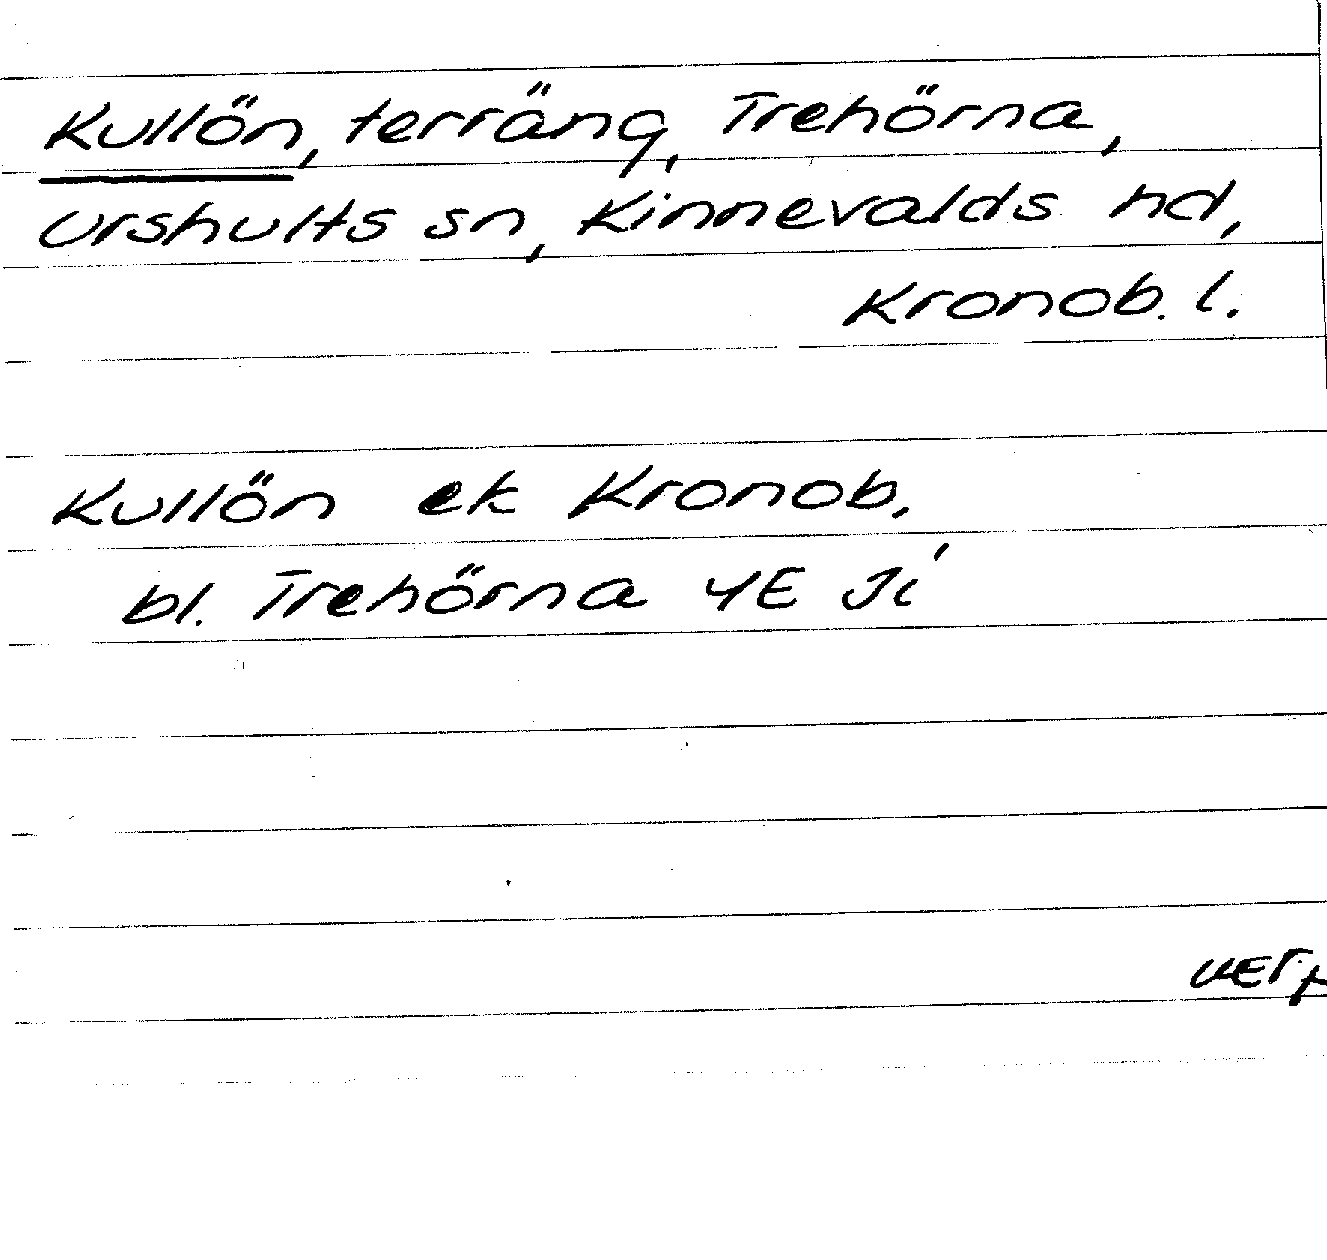 Kullön, terräng, Trehörna,
Urshults sn, Kinnevalds hd,
Kronob. l.
Kullön ek Kronob,
bl. Trehörna 4E Ji